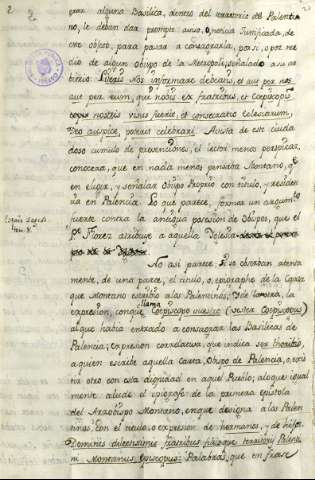 erar alguna Basilica, dentro del territorio de Palentia
no, le deban dar prompto aviso, o noticia anticipada, de
este objeto, para pasar a consagrarla, por sí, o por me
dio de algun Obispo de la Metropoli, señalado a su ar
bitrio:
per eum, que nobis ex fratribus, et Coepiscopis
nostris visus fuerit, et consecratio eclesiarum,
Deo auspice, poterit celebrari. A vista de este cuida
doso cumulo de prevenciones, el lector menos perspicaz,
conocera, que en nada menos pensaba Montano, que
en elegir, y señalar Obispo proprio con titulo, y residen
cia en Palencia. Lo que parece, formar un argumto
fuerte contra la antigua posesion de Obispos, que el
Pe Florez atribuye a aquella Iglesia
No asi parece. Si se observan atenta
mente, de una parte, el titulo, o, epigraphe de la Carta
que Montano escribio a los Palentinos, y de la otra, la
expresion, conque llama Coepiscopo vuestro (vester Coepiscopus)
al que habia entrado a consagrar las Basilicas de
Palencia; expresion correlativa, que indica
a quien escribe aquella carta, Obispo de Palencia, o, exis
tia otro con esta dignidad en aquel Pueblo; a lo que igual
mente alude el epigrafe de la primera epistola
del Arzobispo Montano, en que designa a los Palen
tinos. Con el titulo, o expresion de hermanos, y de hijos.
Dominis dilectissimis fratribus filiisque territorij Palenti
ni Montanus Episcopus: Palabras, que en frase